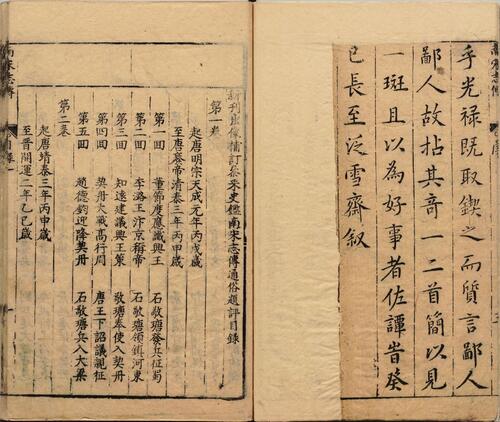 乎光祿既取鍥之而質言鄙人
鄙人故拈其奇一二首簡以見
一斑且以為好事者佐譚旹癸
巳長至泛雪齋叙
南宋志傳
目錄
一
新刊出像補訂叅采史鑑南宋志傳通俗題評目錄
第一卷
起唐明宗天成元年丙戌歲
至唐廢帝清泰三年丙申歲
第一回 董節度應讖興王 石敬瑭發兵征蜀
第二回 李潞王汴京稱帝 石敬瑭領鎮河東
第三回 知遠建議興王策 敬瑭奉使入契丹
第四回 契丹大戰高行周 唐王下詔議親征
第五回 趙德鈞迎降契丹 石敬瑭兵入大梁
第二卷
起唐清泰三年丙申歲
至晉開運二年乙巳歲